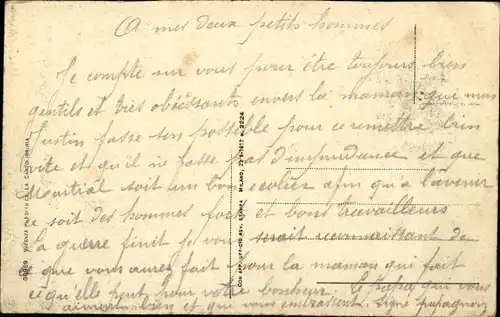 A mes deux petits hommes
Je compte sur vous pour être toujours bien
gentils et très obéissants envers la maman, que mon
Justin fasse son possible pour se remettre bien
vite et qu'il ne fasse pas d'imprudance et que
Martial soit un bon ecolier afin qu'à l'avenir
ce soit des hommes forts et bons travailleurs
La guerre finit je vous serait reconnaissant de
ce que vous aurez fait pour la maman qui fait
ce qu'elle peut pour votre bonheur. Le papa qui vous
aiment bien et qui vous embrassent. Signé
CON APPROV. REV. STAMPA MILANO, 22-9-1917 N. 2224